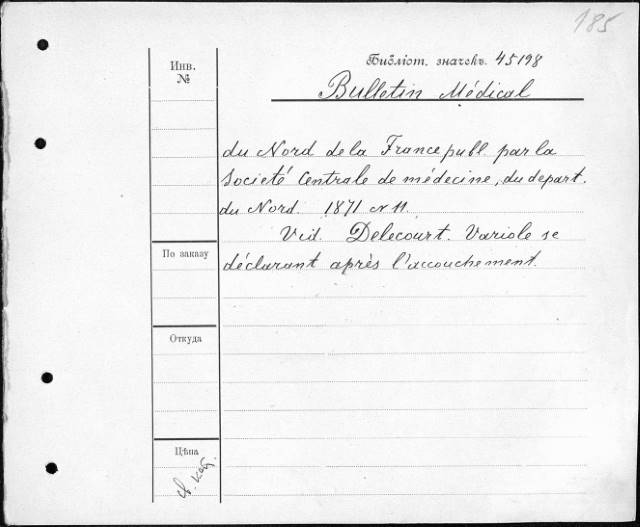 185
Инв.
№
Библіот. значекъ. 45198
Bulletin Médical
du Nord de la France publ. par la
Societé Centrale de médecine, du depart.
du Nord. 1871 N 11.
Vid. Delecourt. Variole se
déclarant après l'accouchement.
По заказу
Откуда
Цѣна